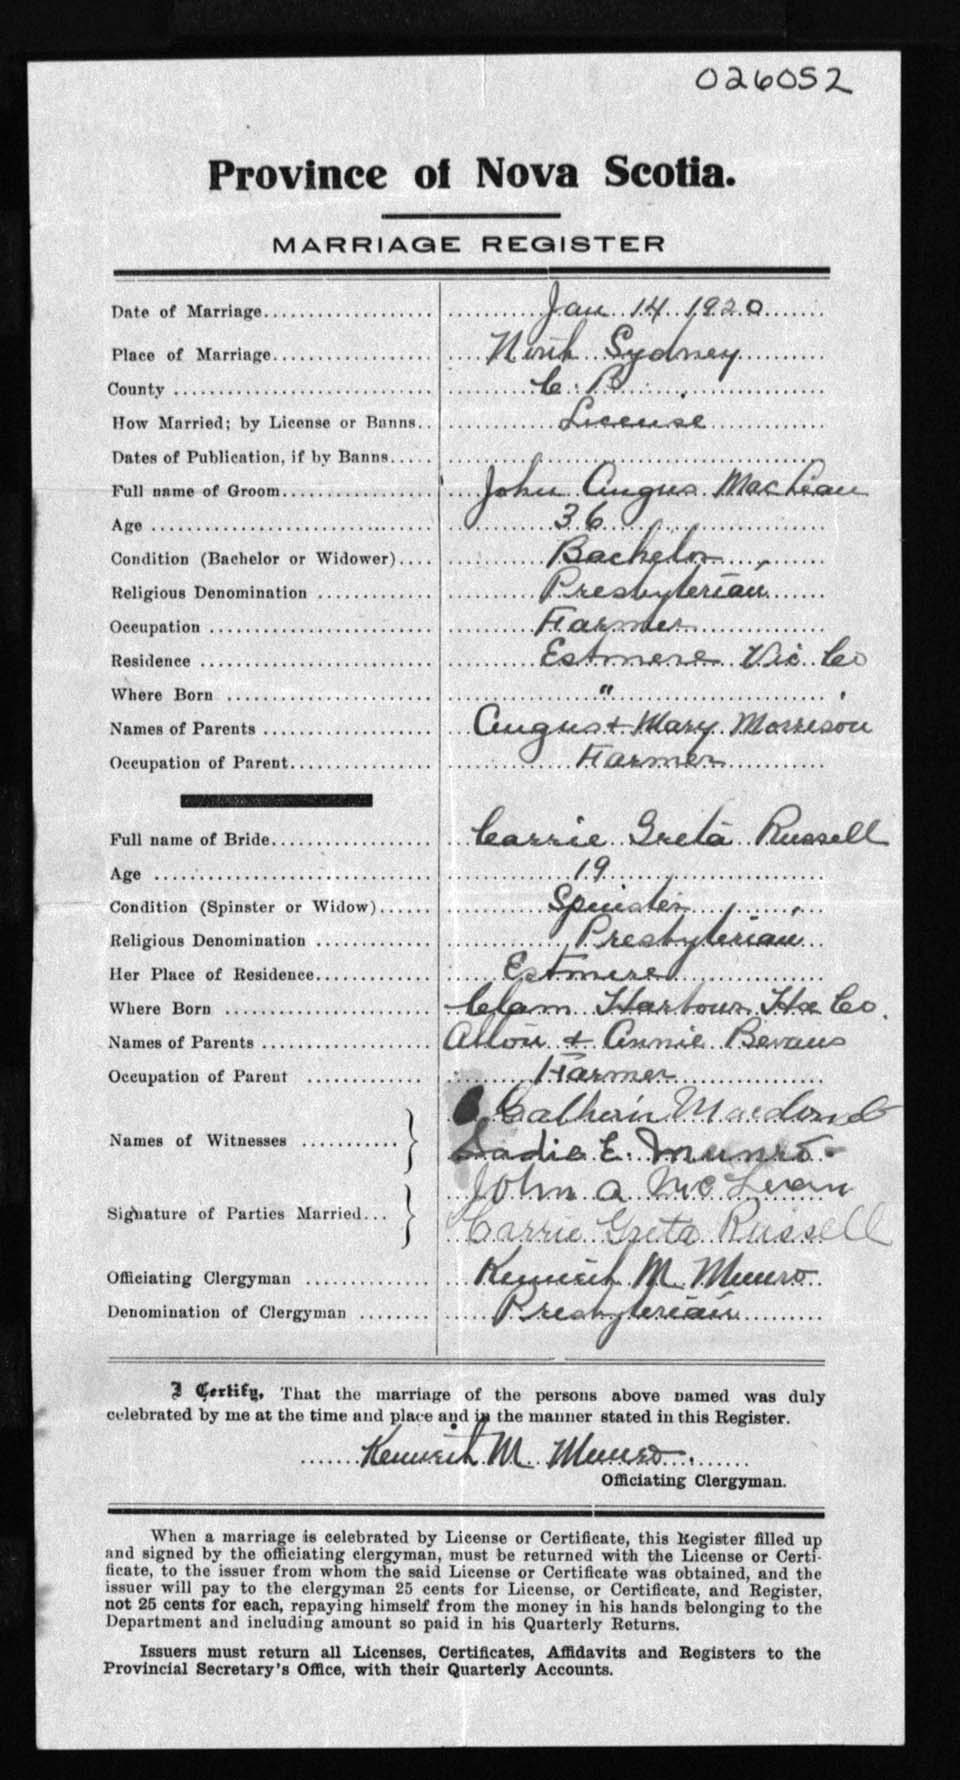 026052
Province of Nova Scotia.
MARRIAGE REGISTER
Date of Marriage Jan 14 1920
Place of Marriage North Sydney
County C. B.
How Married; by License or Banns License
Dates of Publication, if by Banns
Full name of Groom John Angus MacLean
Age 36
Condition (Bachelor or Widower) Bachelor
Religious Denomination Presbyterian
Occupation Farmer
Residence Estmere Vic Co
Where Born "
Names of Parents Angus + Mary Morrison
Occupation of Parent Farmer
Full name of Bride Carrie Greta Russell
Age 19
Condition (Spinster or Widow) Spinster
Religious Denomination Presbyterian
Her Place of Residence Estmere
Where Born Clam Harbour Hx Co.
Names of Parents & Annie Bevans
Occupation of Parent Farmer
Names of Witnesses
Sadie E. Munro
Signature of Parties Married John A McLean
Carrie Greta Russell
Officiating Clergyman Kenneth M. Munro
Denomination of Clergyman Presbyterian
I Certify, That the marriage of the persons above named was duly
celebrated by me at the time and place and in the manner stated in this Register.
Kenneth M. Munro
Officiating Clergyman.
When a marriage is celebrated by License or Certificate, this Register filled up
and signed by the officiating clergyman, must be returned with the License or Certi-
ficate, to the issuer from whom the said License or Certificate was obtained, and the
issuer will pay to the clergyman 25 cents for License, or Certificate, and Register,
not 25 cents for each, repaying himself from the money in his hands belonging to the
Department and including amount so paid in his Quarterly Returns.
Issuers must return all Licenses, Certificates, Affidavits and Registers to the
Provincial Secretary's Office, with their Quarterly Accounts.